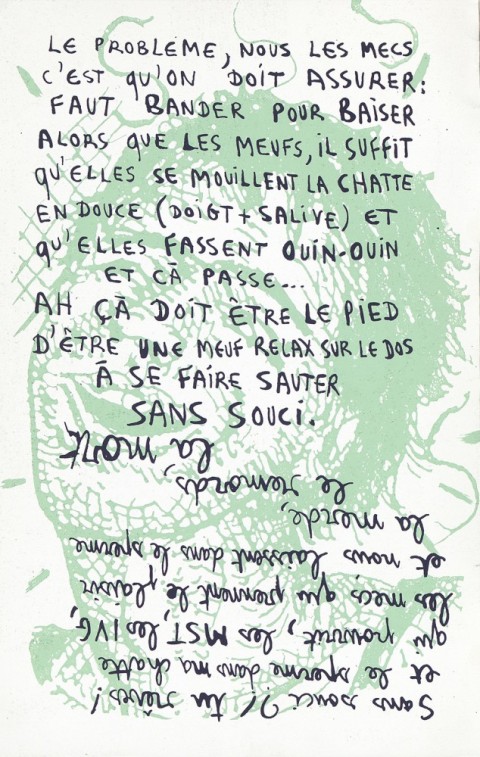 LE PROBLEME, NOUS LES MECS
C'EST QU'ON DOIT ASSURER:
FAUT BANDER POUR BAISER
ALORS QUE LES MEUFS, IL SUFFIT
QU'ELLES SE MOUILLENT LA CHATTE
EN DOUCE (DOIGT + SALIVE) ET
QU'ELLES FASSENT OUIN-OUIN
ET CÀ PASSE...
AH ÇÀ DOIT ÊTRE LE PIED
D'ÊTRE UNE MEUF RELAX SUR LE DOS
À SE FAIRE SAUTER
SANS SOUCI.
Sans souci ?! tu rêves !
et le sperme dans ma chatte
qui pourrit, les MST, les IVG,
les mecs qui prennent le plaisir
et nous laissent dans le sperme
la merde,
le remords,
la mort